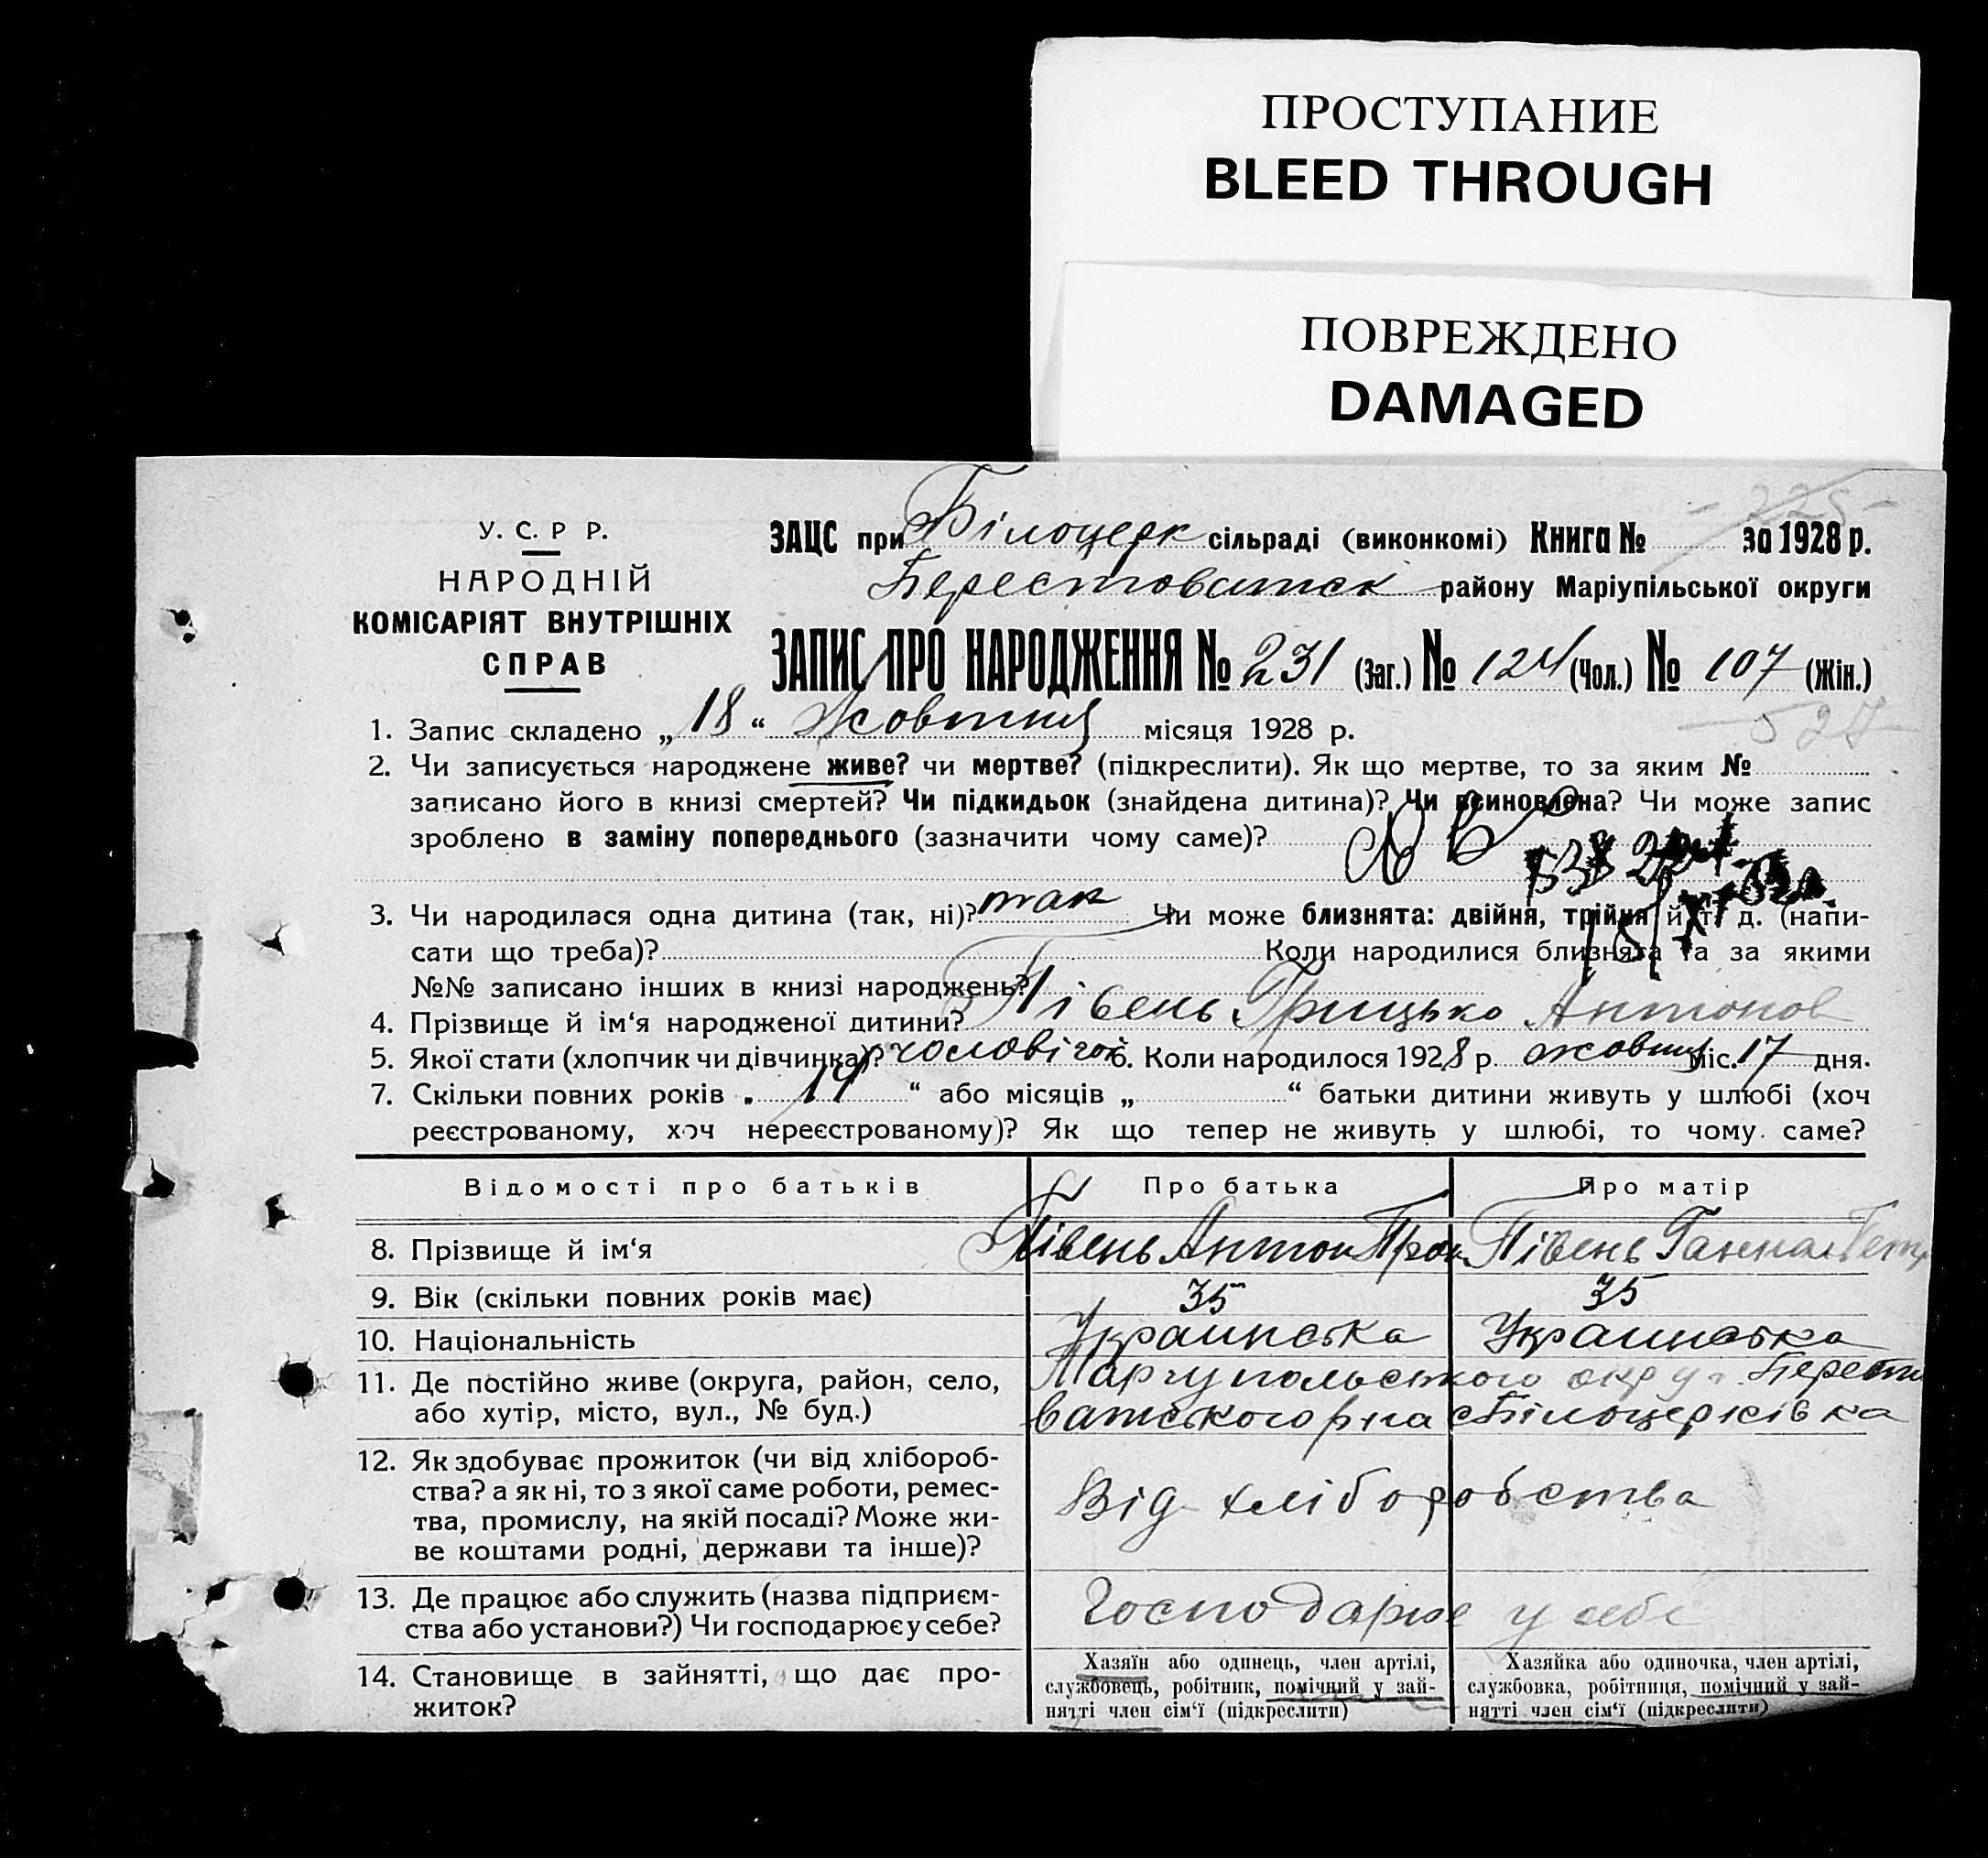 ПРОСТУПАНИЕ
BLEED THROUGH
ПОВРЕЖДЕНО
DAMAGED
- 225 -
У. С. Р Р.
НАРОДНІЙ
КОМІСАРІЯТ ВНУТРІШНІХ
СПРАВ
ЗАЦС при Білоцерк сільраді (виконкомі) Книга № за 1928 р.
Берестоватск району Маріупільської округи
ЗАПИС ПРО НАРОДЖЕННЯ № 231 (Заг.) № 124 (Чол.) № 107 (Жін.)
527
1. Запис складено „ 18 “ Жовтня місяця 1928 р.
2. Чи записується народжене живе? чи мертве? (підкреслити). Як що мертве, то за яким №
записано його в книзі смертей? Чи підкидьок (знайдена дитина)? Чи всиновлена? Чи може запис
зроблено в заміну попереднього (зазначити чому саме)?
3. Чи народилася одна дитина (так, ні)? так Чи може близнята: двійня, трійня й т. д. (напи-
сати що треба)? Коли народилися близнята та за якими
№№ записано інших в книзі народжень?
4. Прізвище й ім‘я народженої дитини? Півень Грицько Антонов
5. Якої стати (хлопчик чи дівчинка)? чоловічої 6. Коли народилося 1928 р. жовтня міс. 17 дня.
7. Скільки повних років „ 14 “ або місяців „ “ батьки дитини живуть у шлюбі (хоч
реєстрованому, хоч нереєстрованому)? Як що тепер не живуть у шлюбі, то чому саме?
Відомості про батьків Про батька Про матір
8. Прізвище й ім‘я Півень Антон Прок Півень Ганна Петр
9. Вік (скільки повних років має) 35 35
10. Національність Украинська Украинська
11. Де постійно живе (округа, район, село,
або хутір, місто, вул., № буд.)
Маріупольського округ. Берести
ватського рна с Білоцерківка
12. Як здобуває прожиток (чи від хлібороб-
ства? а як ні, то з якої саме роботи, ремес-
тва, промислу, на якій посаді? Може жи-
ве коштами родні, держави та інше)?
Від хліборобства
13. Де працює або служить (назва підприєм-
ства або установи?) Чи господарює у себе?
Господарює у себе
14. Становище в зайнятті, що дає про-
житок?
Хазяїн або одинець, член артілі,
службовець, робітник, помічний у зай-
нятті член сім‘ї (підкреслити)
Хазяйка або одиночка, член артілі,
службовка, робітниця, помічний у зай-
нятті член сім‘ї (підкреслити)